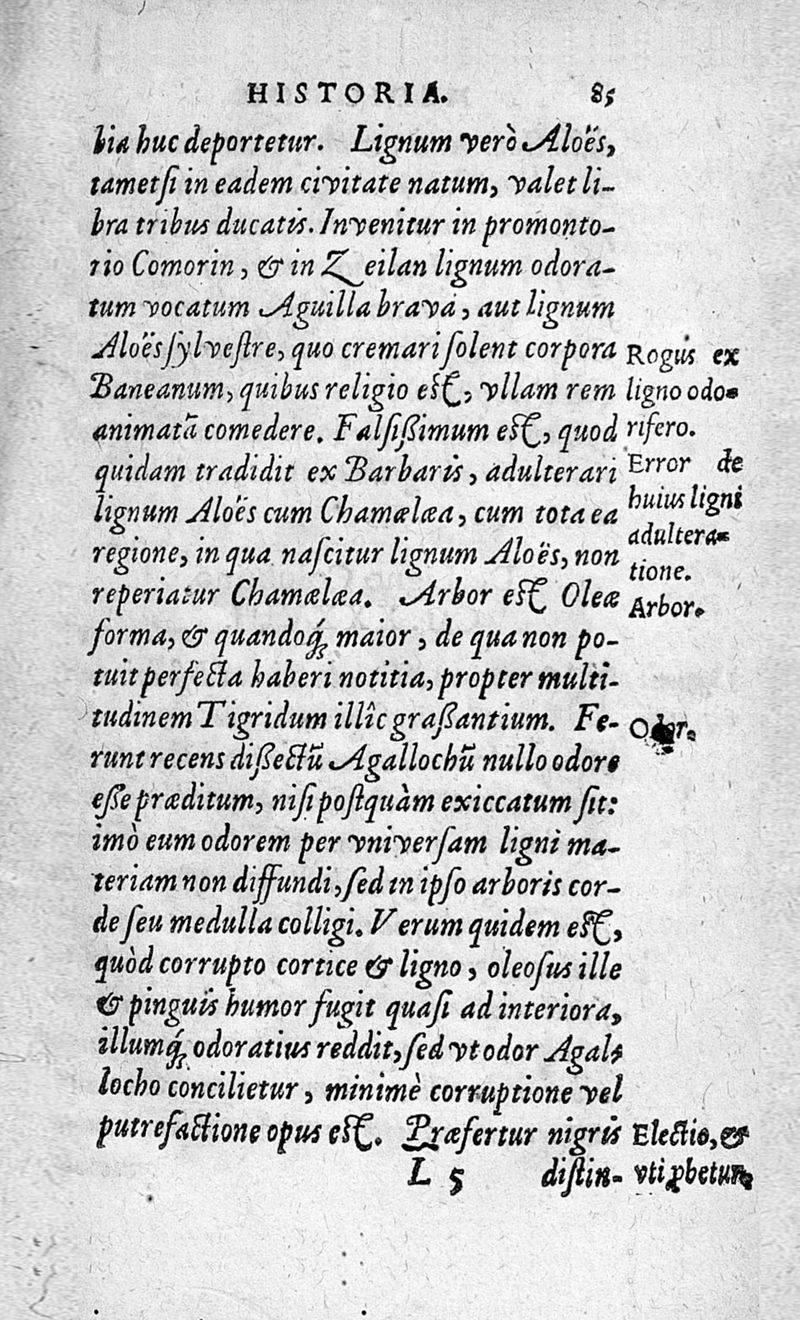 HISTORIA. 85
bia huc deportetur. Lignum verò Aloës,
tametsi in eadem civitate natum, valet li-
bra tribus ducatis. Invenitur in promonto-
rio Comorin, & in Zeilan lignum odora-
tum vocatum Aguilla brava, aut lignum
Aloës sylvestre, quo cremari solent corpora
Baneanum, quibus religio est, vllam rem
animatā comedere. Falsißimum est, quod
quidam tradidit ex Barbaris, adulterari
lignum Aloës cum Chamælæa, cum tota ea
regione, in qua nascitur lignum Aloës, non
reperiatur Chamælæa. Arbor est Oleæ
forma, & quandoq́; maior, de qua non po-
tuit perfecta haberi notitia, propter multi-
tudinem Tigridum illîc graßantium. Fe-
runt recens dißectū Agallochū nullo odore
eße præditum, nisi postquàm exiccatum sit:
imò eum odorem per vniversam ligni ma-
teriam non diffundi, sed in ipso arboris cor-
de seu medulla colligi. Verum quidem est,
quòd corrupto cortice & ligno, oleosus ille
& pinguis humor fugit quasi ad interiora,
illumq́; odoratius reddit, sed vt odor Agal-
locho concilietur, minimè corruptione vel
putrefactione opus est. Præfertur nigris
L 5 distin-
Rogus ex
ligno odo-
rifero.
Error de
huius ligni
adultera-
tione.
Arbor.
Odor.
Electio, &
vti ꝓbetur.